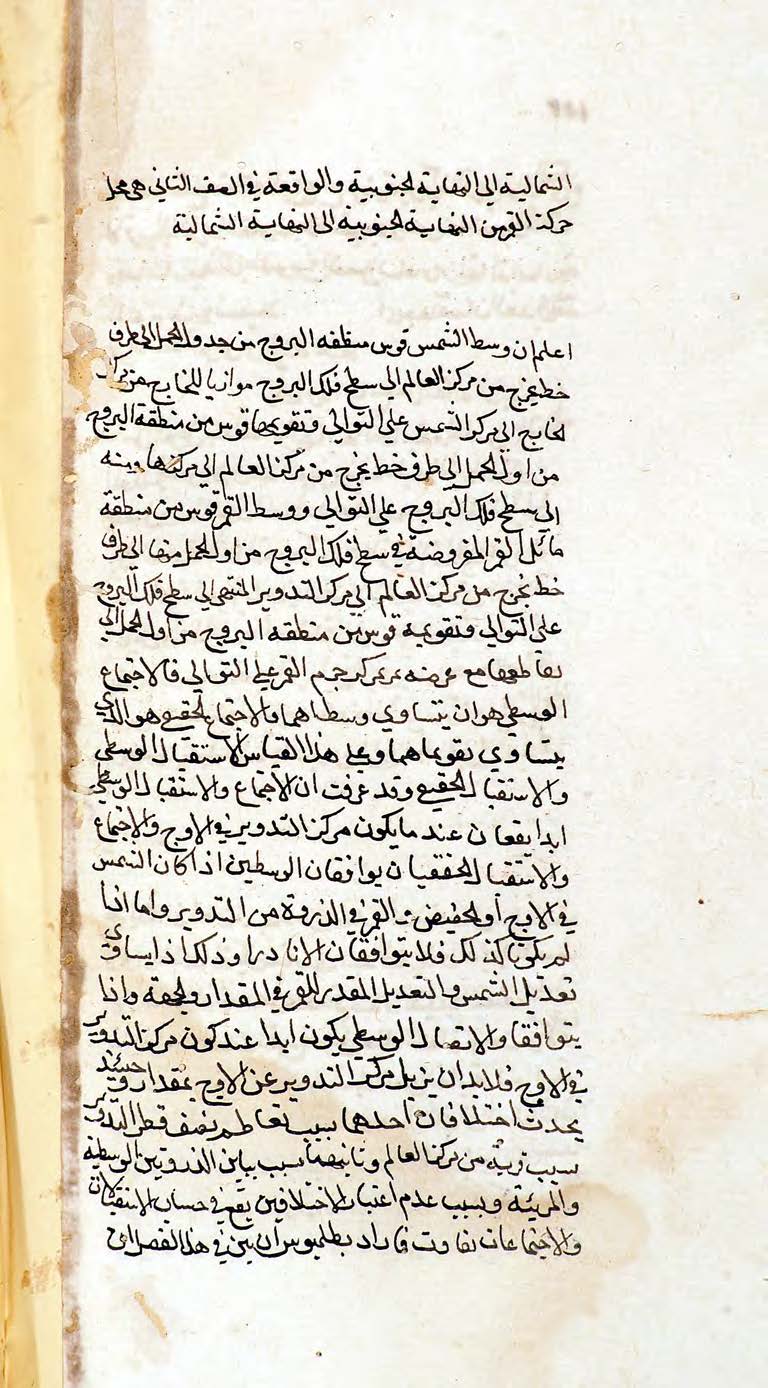 الشمالية الى النهاية الجنوبية والواقعة في الصف الثاني هي محل
حركة القمر من النهاية الجنوبية الى النهاية الشمالية
اعلم ان وسط الشمس قوس منطقه البروج من جدول الحمل الى طرف
خط يخرج من مركز العالم الى سطح فلك البروج موازيا للخارج من مركز
الخارج الى مركز الشمس على التوالي وتقويمها قوس من منطقة البروج
من اول الحمل الى طرف خط يخرج من مركز العالم الى مركزها ومنه
الى سطح فلك البروج على التوالي ووسط القمر قوس من منطقة
مائل القمر المفروضة في سطح فلك البروج من اول الحمل منها الى طرف
خط يخرج من مركز العالم الى مركز التدوير المنتهى الى سطح فلك البروج
على التوالي وتقويمه قوس من منطقه البروج من اول الحمل الى
تقاطعها مع عرضه يمر بمركز جرم القمر على التوالي فالاجتماع
الوسطي هو ان يتساوي وسطاهما والاجتماع الحقيقي هو الذي
يتساوي تقويماهما وعلى هذا القياس الاستقبال الوسطي
والاستقبال الحقيقي وقد عرفت ان الاجتماع والاستقبال الوسطي
ابدا يقعان عند ما يكون مركز التدوير في الاوج والاجتماع
والاستقبال الحقيقيان يوافقان الوسطين اذا كان الشمس
في الاوج او الحضيض والقمر في الذروة من التدوير واما اذا
لم يكونا كذلك فلا يتوافقان الا نادرا وذلك اذا يساوي
تعديل الشمس والتعديل المقدر للقمر في المقدار والجهة واذا
يتوافقا والاتصال الوسطي يكون ابدا عند كون مركز التدوير
في الاوج فلا بد ان يزيل مركز التدوير عن الاوج بمقدار وحينئذ
يحدث اختلافان احدهما بسبب تعاظم نصف قطر التدوير
بسبب قربه من مركز العالم وثانيهما بسبب تباين الذروتين الوسطية
والمرئية وبسبب عدم اعتبار الاختلافين يقع في حساب الاستقبالات
والاجتماعات تفاوت فاراد بطلميوس ان يبين في هذا الفصل ان